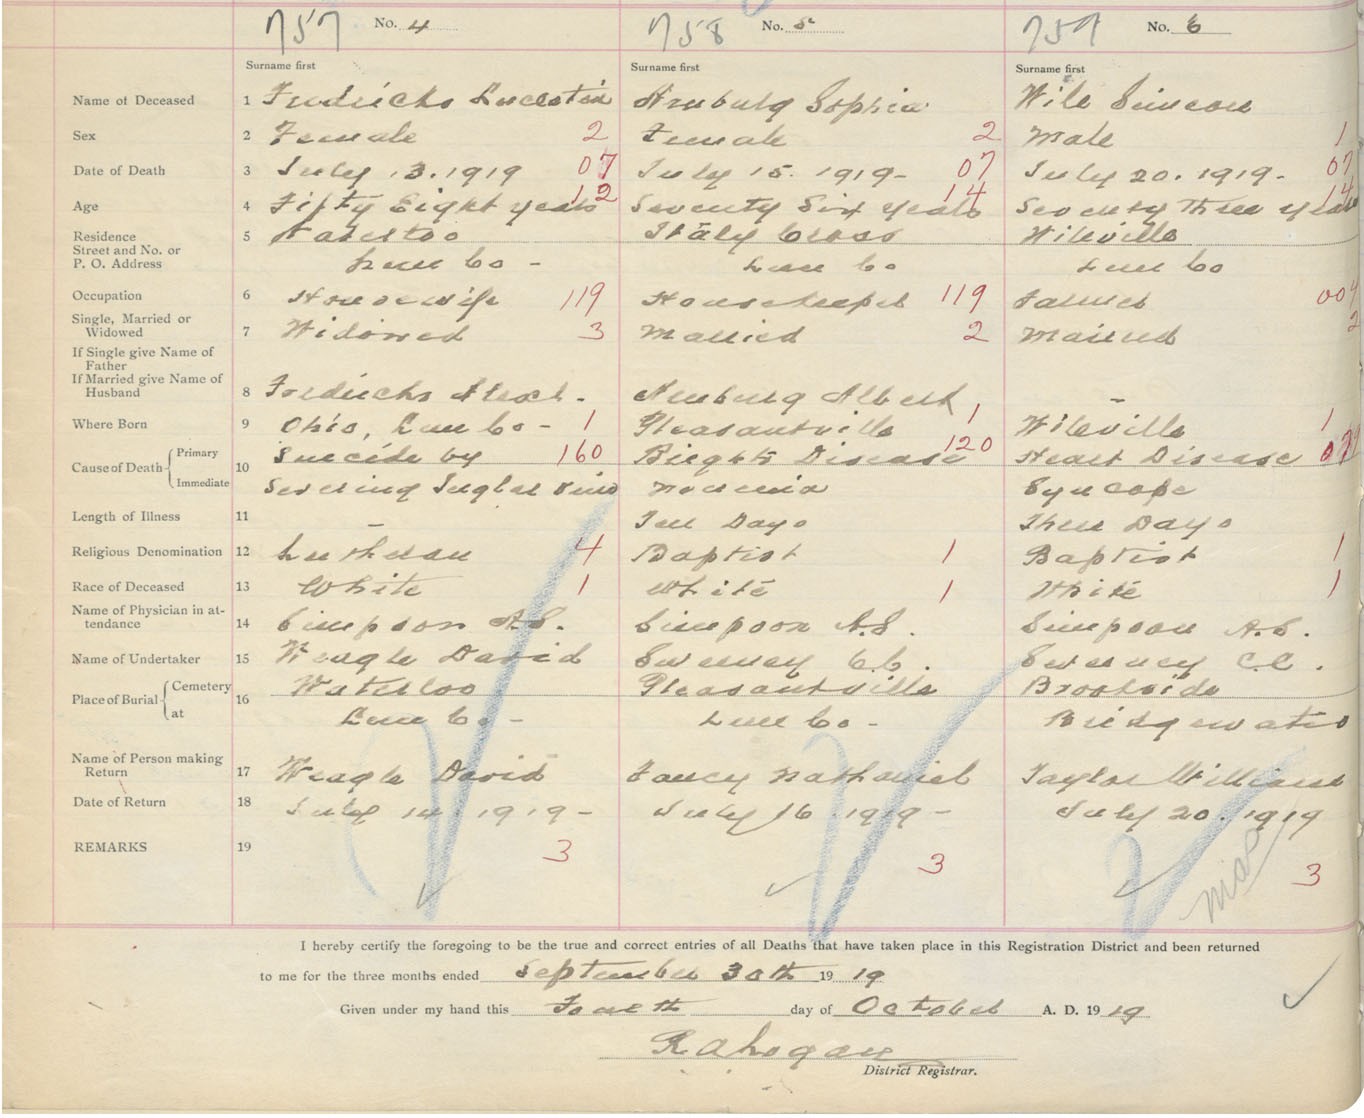 757 No. 4 758 No. 5 759 No. 6
Surname first Surname first Surname first
Name of Deceased 1 Fredricks Lucretia Arenburg Sophia Wile Simeon
Sex 2 Female 2 Female 2 Male 1
Date of Death 3 July 13. 1919 07 July 15. 1919- 07 July 20. 1919- 07
Age 4 Fifty Eight years 12 Seventy Six years 14 Seventy Three years 14
Residence 5 Waterloo Italy Cross Wileville
Street and No. or
P. O. Address Lun Co - Lun Co Lun Co
Occupation 6 Housewife 119 Housekeeper 119 Farmer 009
Single, Married or
Widowed 7 Widowed 3 Married 2 Married 2
If Single give Name of
Father
If Married give Name of
Husband 8 Fredricks Alexd. Arenburg Albert -
Where Born 9 Ohio, Lun Co - 1 Pleasantville 1 Wileville 1
Cause of Death Primary 10 Suicide by 160 Brights Disease 120 Heart Disease 079
Immediate Severing Juglar Vein Syncope
Length of Illness 11 - Ten Days Three Days
Religious Denomination 12 Lutheran 4 Baptist 1 Baptist 1
Race of Deceased 13 White 1 White 1 White 1
Name of Physician in at-
tendance 14 Simpson A.S. Simpson A.S. Simpson A.S.
Name of Undertaker 15 Weagle David Sweeney C.C. Sweeney C.C.
Place of Burial Cemetery 16 Waterloo Pleasantville Brookside
at Lun Co - Lun Co - Bridgewater
Name of Person making
Return 17 Weagle David Fancy Nathaniel Taylor William
Date of Return 18 July 14. 1919- July 16. 1919- July 20. 1919
REMARKS 19 3 3 3
I hereby certify the foregoing to be the true and correct entries of all Deaths that have taken place in this Registration District and been returned
to me for the three months ended September 30th 1919
Given under my hand this Fourth day of October A. D. 1919
R A Logan
District Registrar.